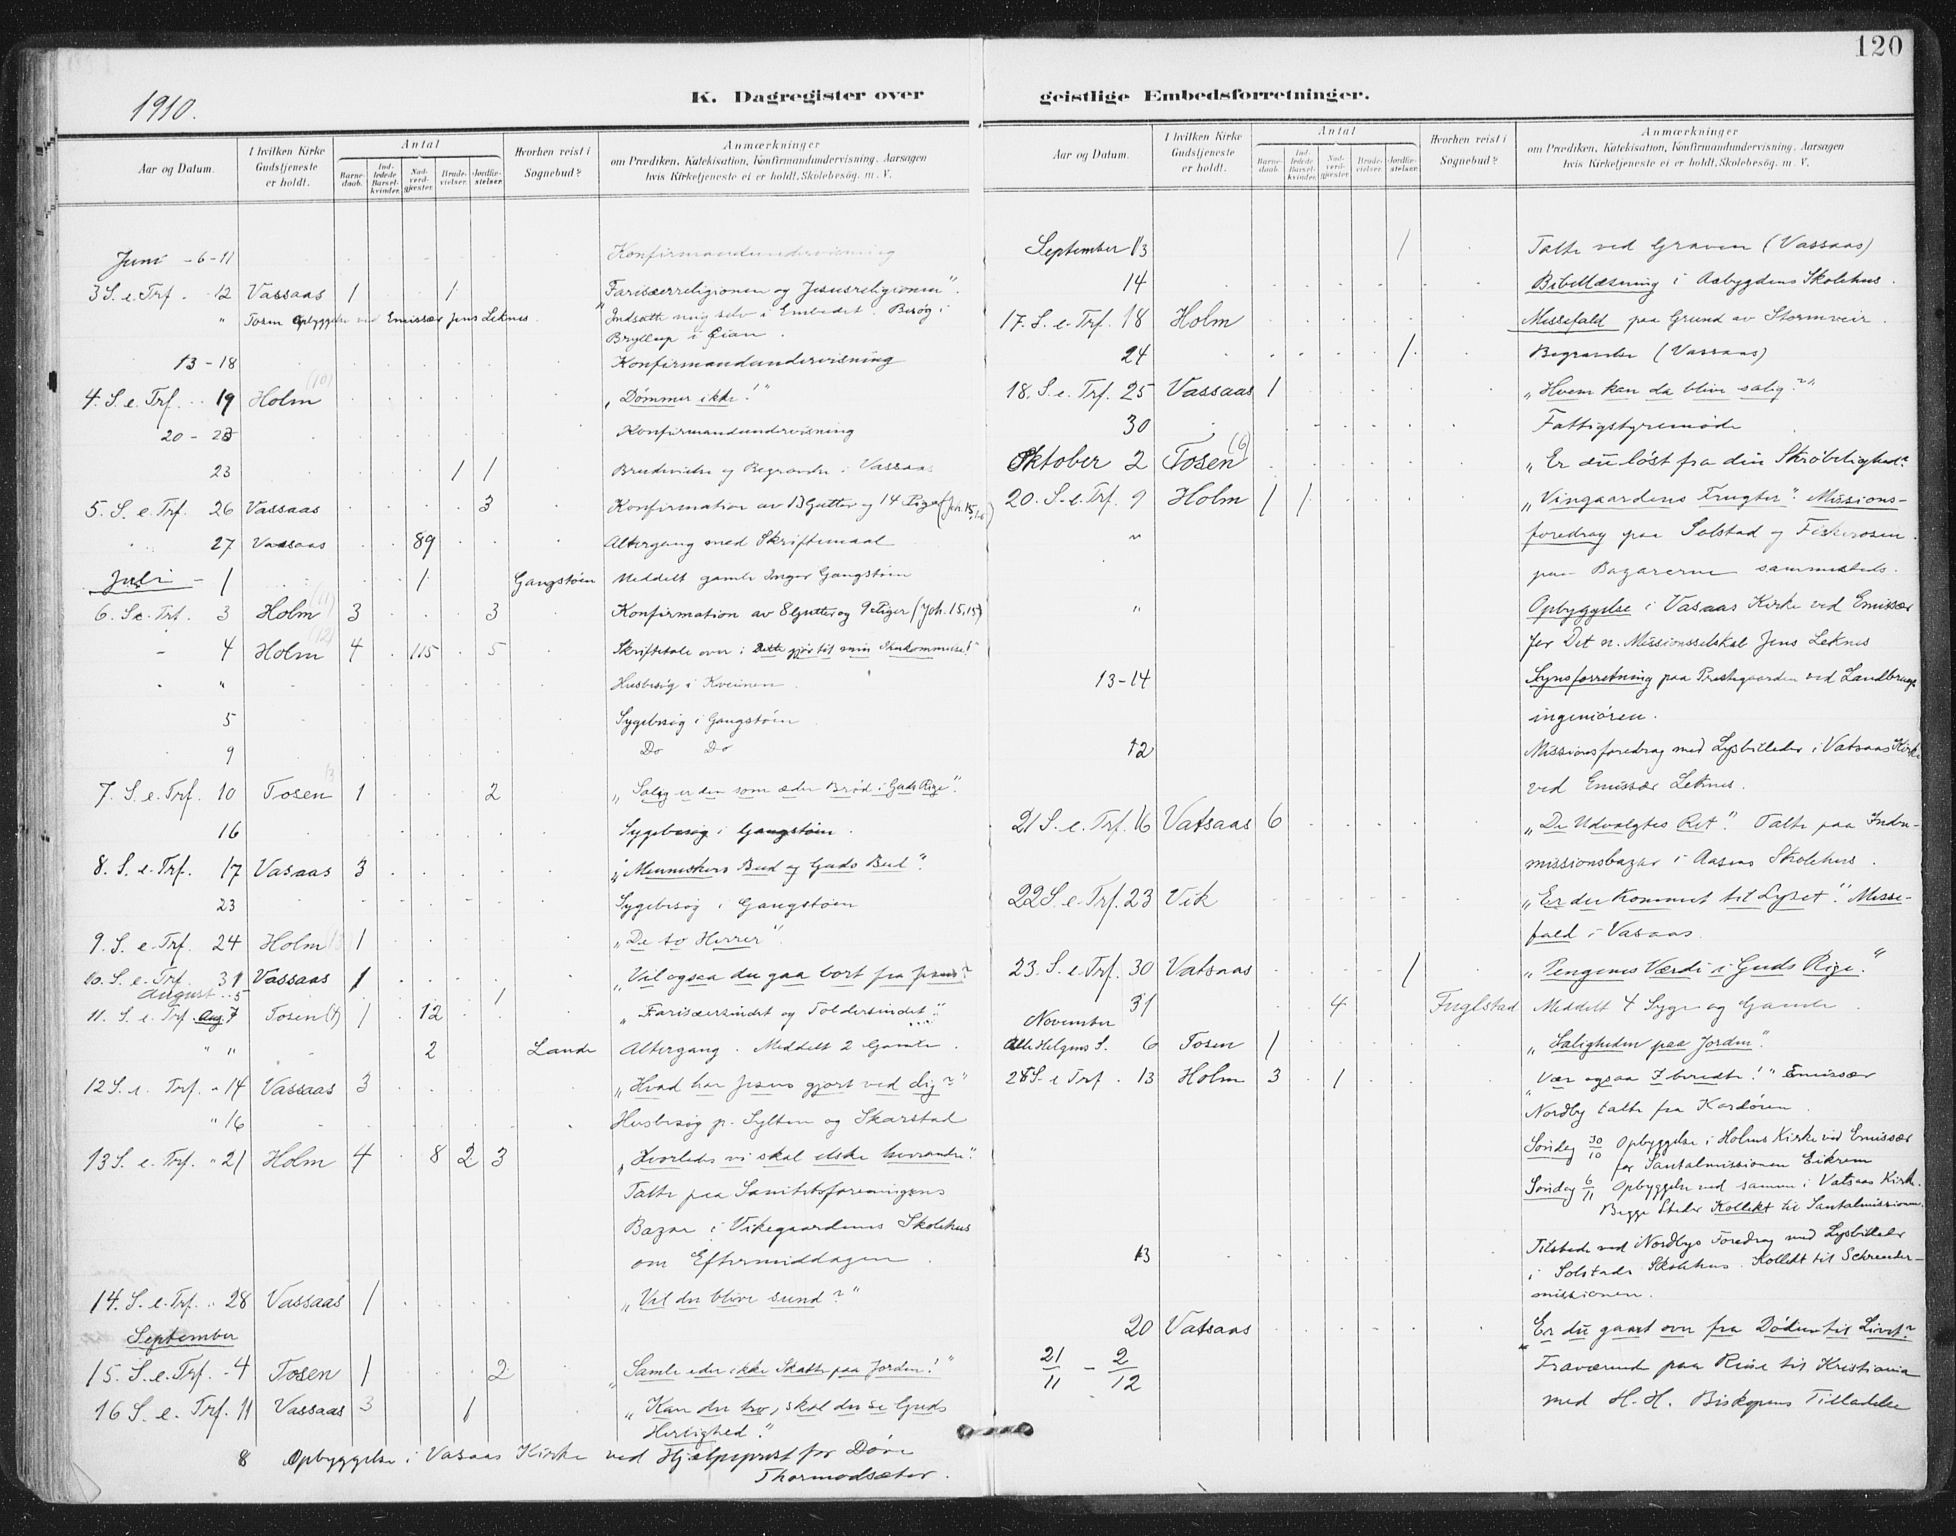 120
1910.
K. Dagregister over geistlige Embedsforretninger.
Aar og Datum.
I hvilken Kirke Gudstjeneste er holdt.
Antal
Barnedaab.
Indledede Barselkvinder.
Nadverdgjester.
Brudevielser.
Jordfæstelser.
Hvorhen reist i Sognebud?
Anmærkninger
om Prædiken, Katekisation, Konfirmandundervisning. Aarsagen
hvis Kirketjeneste ei er holdt. Skolebesøg. m. V.
Juni - 6-11 Konfirmandundervisning
3 S. e. Trf. - 12 Vassaas 1 1 Farisæerreligionen og Jesusreligionen".
" Tosen Opbyggelse ved Emissær Jens Leknes. "Indsatte mig selv i Embedet". Besøg i
Bryllup i Eian.
13-18 Konfirmandundervisning
4. S. e. Trf. 19 Holm (10) „Dömmer ikke!"
20-23 Konfirmandundervisning
23 1 1 Brudevielse og Begravelse i Vassaas
5. S. e. Trf. 26 Vassaas 3 Konfirmation av 13 Gutter og 14 Piger (Joh. 15,16)
27 Vassaas 89 Altergang med Skriftemaal
Juli - 1 1 Gangstøen Meddelt gamle Inger Gangstøen
6. S. e. Trf. 3 Holm (11) 3 3 Konfirmation av 8 Gutter og 9 Piger (Joh. 15,15)
4 Holm (12) 4 115 5 Skriftetale over: Dette gjør til min Ihukommelse!
" Husbesøg i Kveinen
5 Sygebesøg i Gangstøen
9 Do Do
7. S. e. Trf. 10 Tosen 13 1 2 „Salig er den som æder Brød i Guds Rige".
16 Sygebesøg i Gangstøen.
8. S. e. Trf. 17 Vassaas 3 „Menneskers Bud og Guds Bud".
23 Sygebesøg i Gangstøen
9. S. e. Trf. 24 Holm 1 „De to Herrer"
10. S. e. Trf. 31 Vassaas 1 „Vil ogsaa du gaa bort fra Jesus?
August 5 1
11. S. e. Trf. Aug. 7 Tosen 1 12 „Farisæersindet og Toldersindet".
" " 2 Lande Altergang. Meddelt 2 Gamle.
12 S. e. Trf. - 14 Vassaas 3 „Hvad har Jesus gjort ved dig?"
" 16 Husbesøg p. Sylten og Skarstad
13 S. e. Trf. " 21 Holm 4 8 2 3 „Hvorledes vi skal elske hverandre".
Talte paa Sanitetsforeningens
Bazar i Vikegaardens Skolehus
om Eftermiddagen.
14. S. e. Trf. " 28 Vassaas 1 „Vil du blive sund?"
September
15. S. e. Trf. - 4 Tosen 1 2 „Samle eder ikke Skatte paa Jorden!"
16 S. e. Trf. 11 Vassaas 3 1 „Kan du tro, skal du se Guds
Herlighed".
8 Opbyggelse i Vassaas Kirke ved Hjælpeprest for Døve
Thormodsæter.
Aar og Datum.
I hvilken Kirke Gudstjeneste er holdt.
Antal
Barnedaab.
Indledede Barselkvinder.
Nadverdgjester.
Brudevielser.
Jordfæstelser.
Hvorhen reist i Sognebud?
Anmærkninger
om Prædiken, Katekisation, Konfirmandundervisning. Aarsagen
hvis Kirketjeneste ei er holdt. Skolebesøg. m. V.
September 13 1 Talte ved Graven (Vassaas)
14 Bibellæsning i Aabygdens Skolehus.
17. S. e. Trf. 18 Holm Messefald paa Grund av Stormveir.
24 1 Begravelse (Vassaas)
18. S. e. Trf. 25 Vassaas 1 „Hvem kan da blive salig?"
30 Fattigstyremøde
Oktober 2 Tosen (6) „Er du løst fra din Skrøbelighed?
20. S. e. Trf. 9 Holm 1 1 „Vingaardens Frugter". Missions-
" foredrag paa Solstad og Fiskerosen.
paa Bazarerne sammesteds.
" Opbyggelse i Vassaas Kirke ved Emissær
for Det n. Missionsselskab Jens Leknes
13-14 Synsforretning paa Prestegaarden ved Landbrugs-
ingeniören.
12 Missionsforedrag med Lysbilleder i Vatsaas Kirke
ved Emissær Leknes.
21 S. e. Trf. 16 Vatsaas 6 „De Udvalgtes Ret". Talte paa Indre-
missionsbazar i Aasens Skolehus.
22 S. e. Trf. 23 Vik „Er du kommet til Lyset". Messe-
fald i Vassaas.
23. S. e. Trf. 30 Vatsaas 1 „Pengenes Værdi i Guds Rige."
31 4 Fuglstad Meddelt 4 Syge og Gamle.
November
Alle Helgens S. 6 Tosen 1 „Saligheden paa Jorden".
25 S. e. Trf. 13 Holm 3 1 „Vær ogsaa I beredte!" Emissær
Nordby talte fra Kordøren.
Søndag 30/10 Opbyggelse i Holms Kirke ved Emissær
for Santalmissionen Eikrem
Søndag 6/11 Opbyggelse ved samme i Vatsaas Kirke.
Begge Steder Kollekt til Santalmissionen.
13 Tilstede ved Nordbys Foredrag med Lysbilleder
i Solstads Skolehus. Kollekt til Schreuder-
missionen.
20 Vatsaas „Er du gaaet over fra Døden til Livet?
21/11 - 2/12 Fraværende paa Reise til Kristiania
med H. H. Biskopens Tilladelse